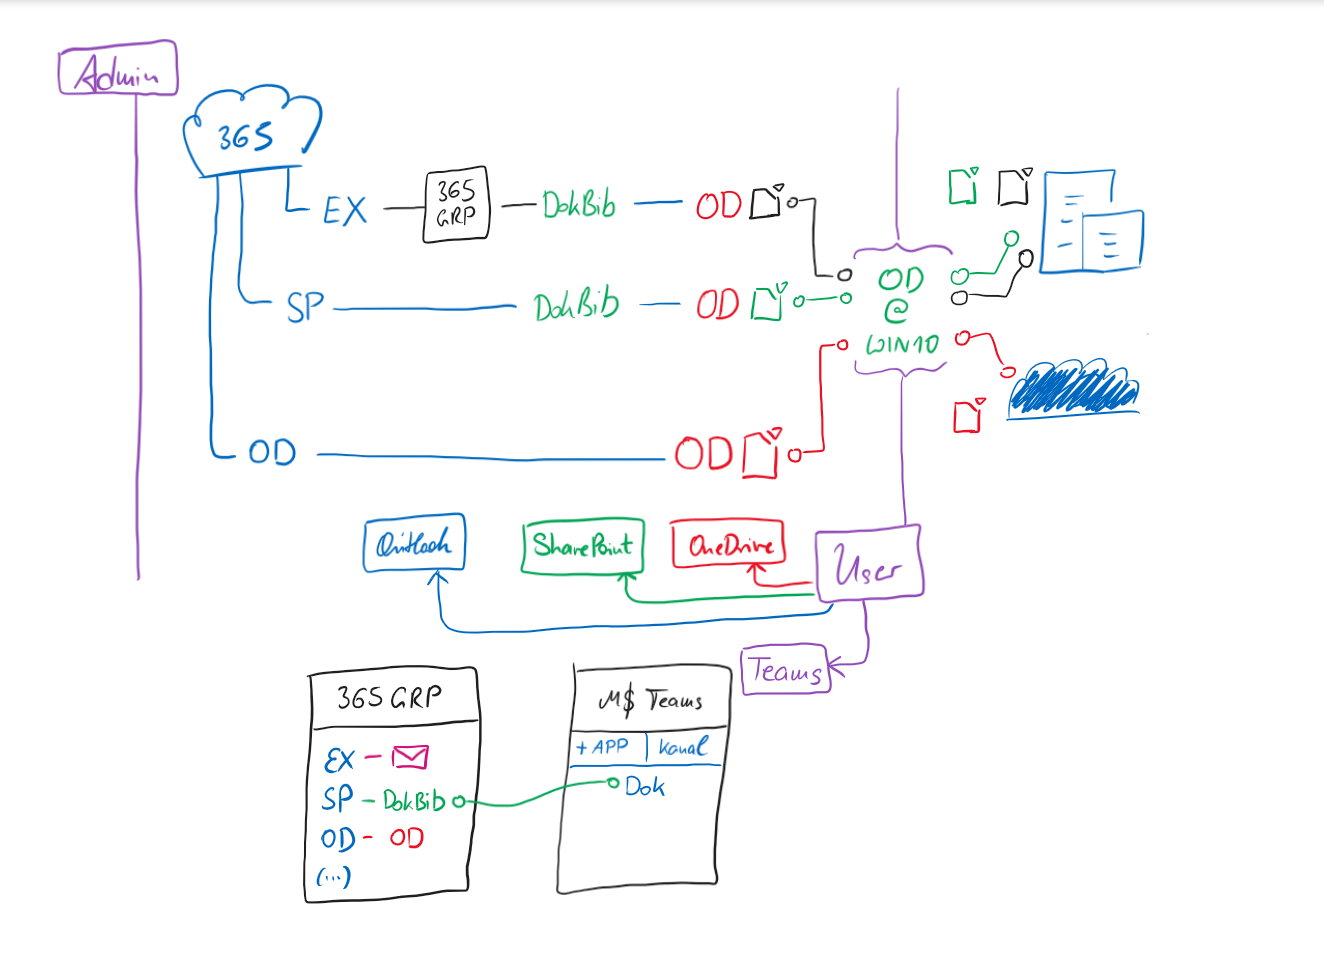 Admin
365
EX
365
GRP
DokBib
OD
SP
DokBib
OD
OD
@
WIN10
OD
OD
Outlook
SharePoint
OneDrive
User
Teams
365 GRP
EX -
SP - DokBib
OD - OD
(...)
M$ Teams
+ APP | Kanal
Dok